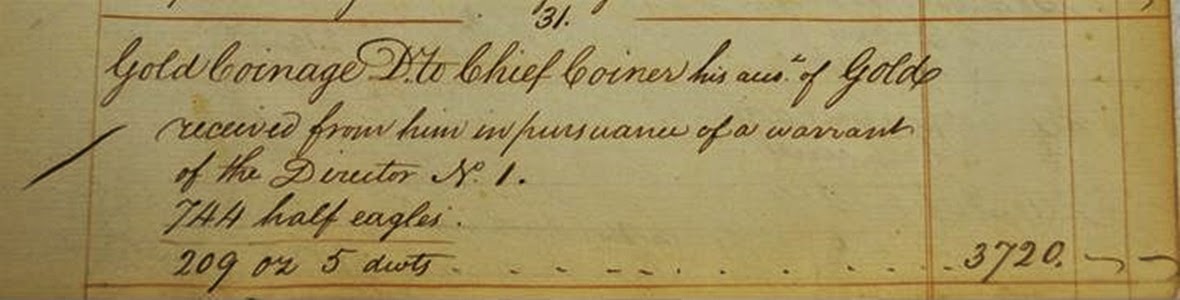 31.
Gold Coinage Dr. to Chief Coiner his of Gold
received from him in pursuance of a warrant
of the Director No. 1.
744 half eagles.
209 oz 5 dwts - - - - - - - - - - 3720. - -